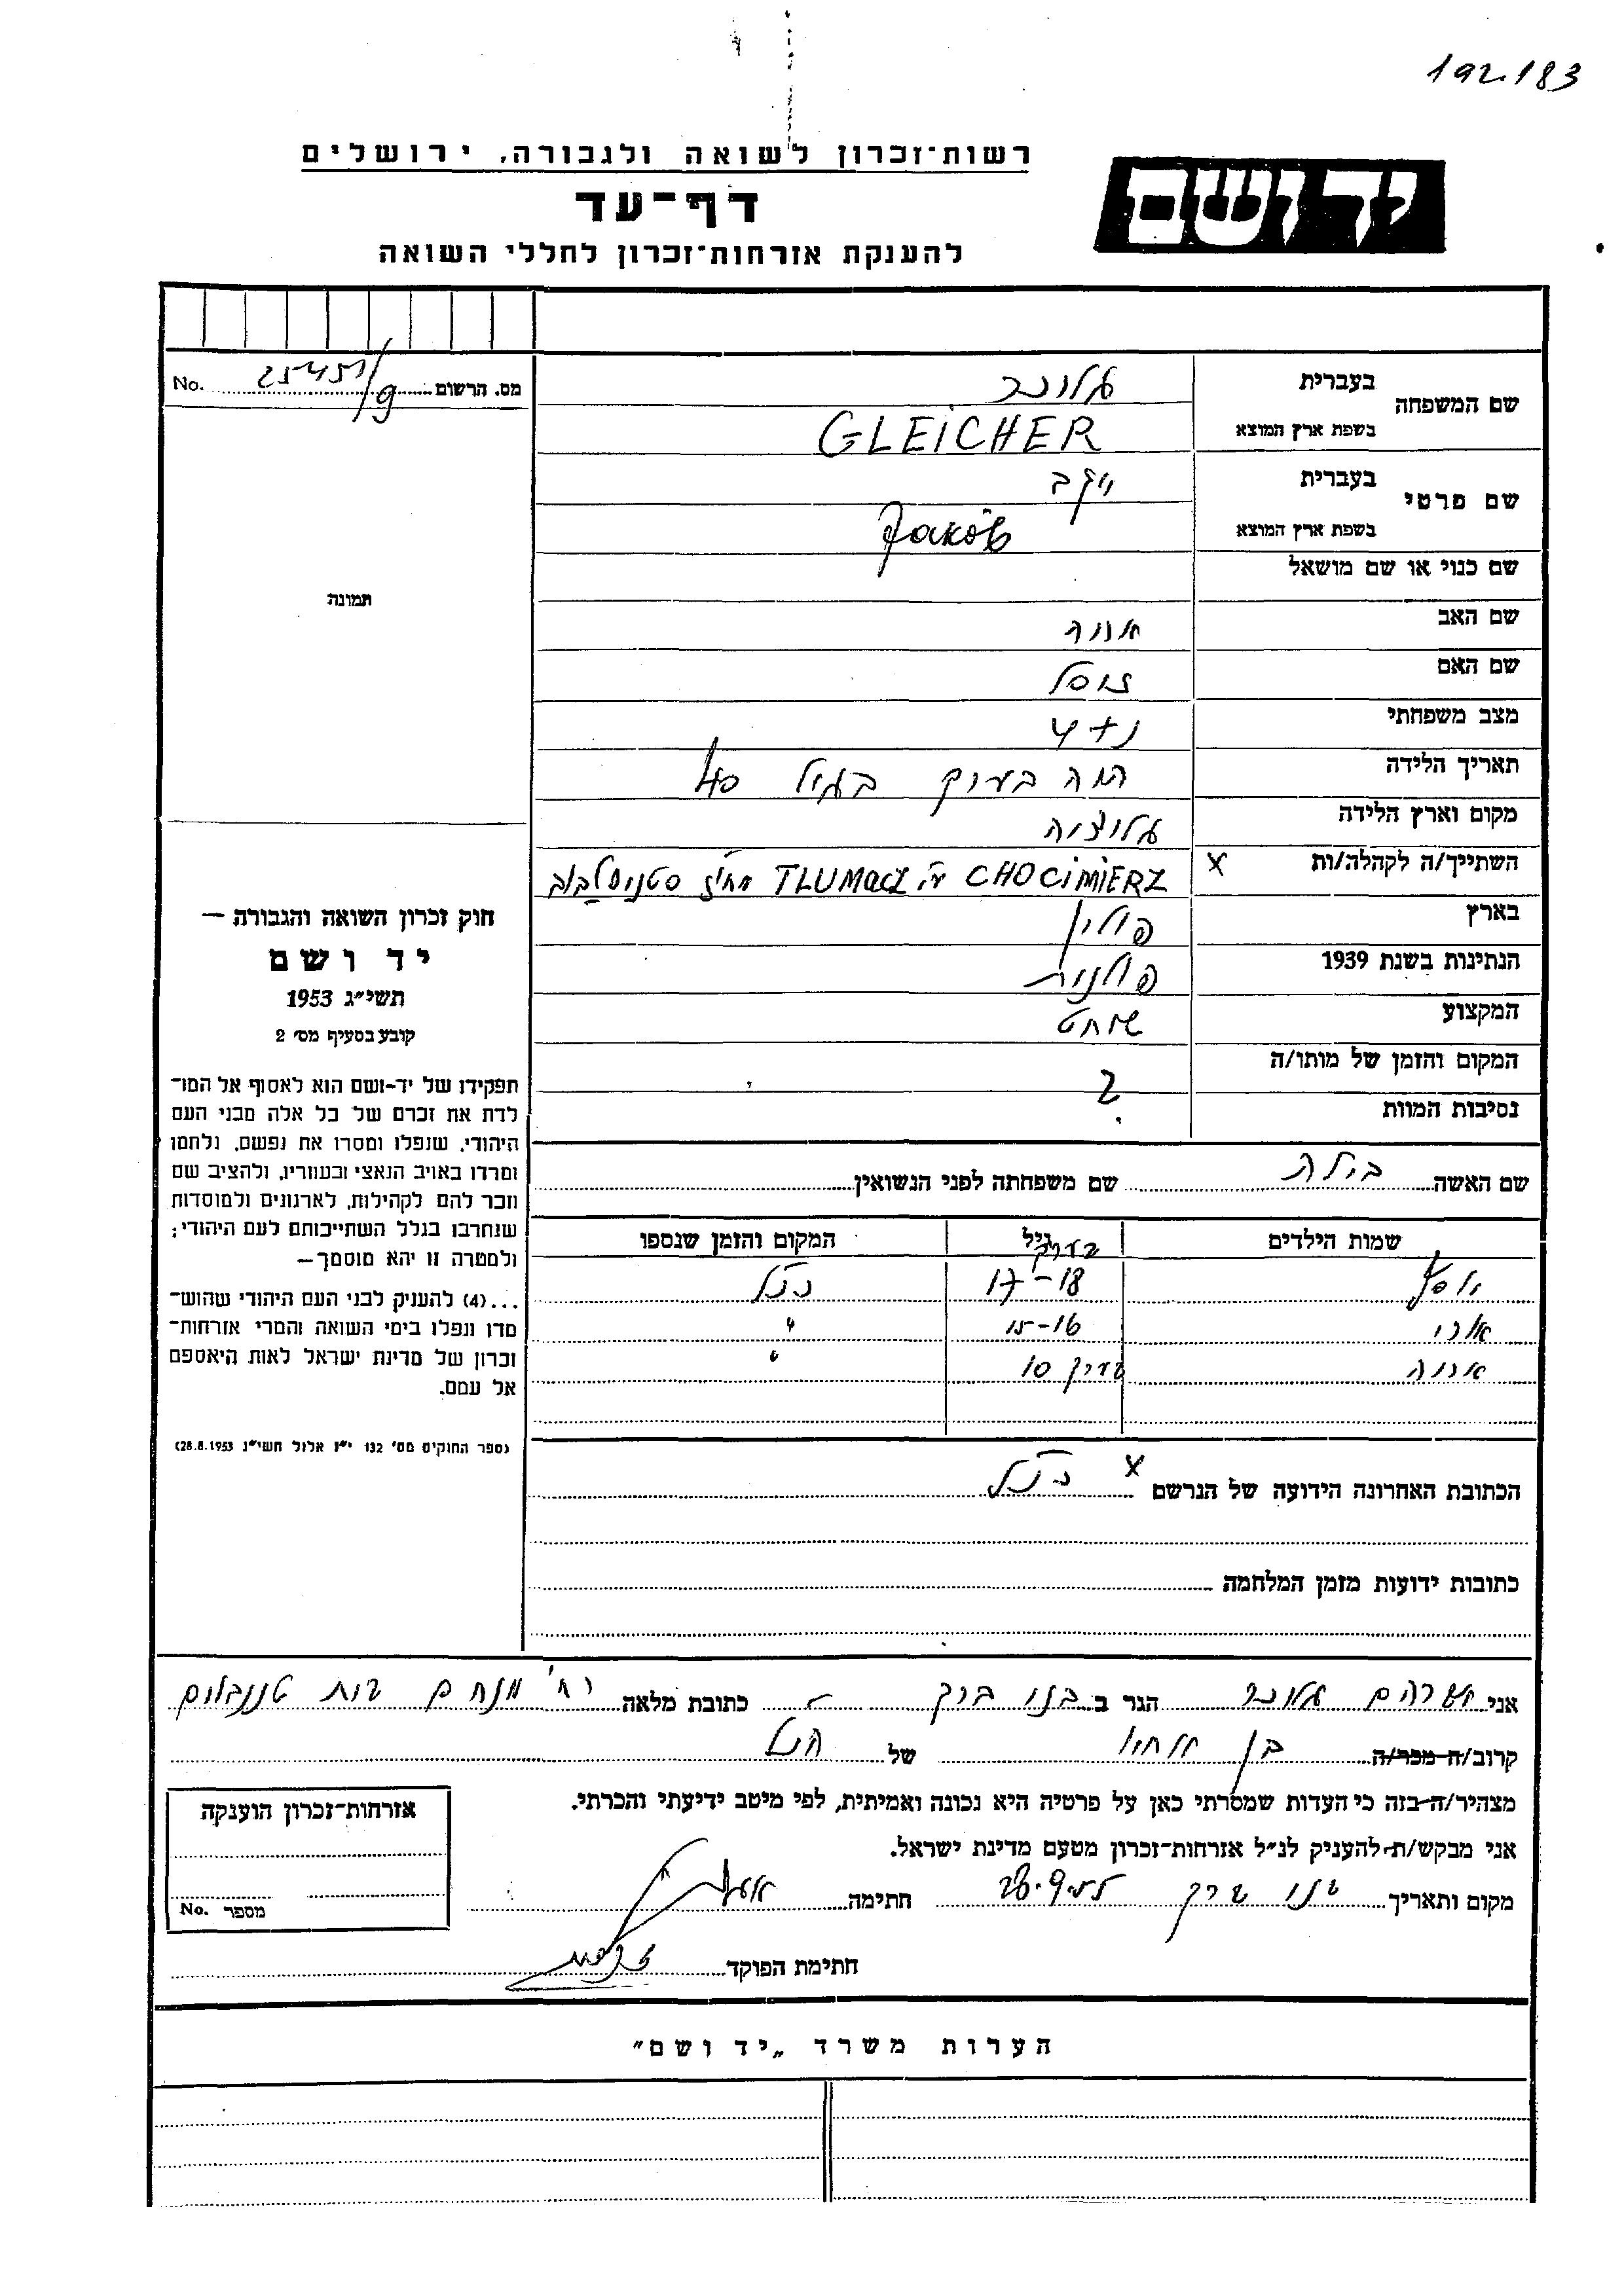 192.183
רשות־זכרון לשואה ולגבורה, ירושלים
יד ושם
דף־עד
להענקת אזרחות־זכרון לחללי השואה
מס. הרשום 25451/g No.
שם המשפחה בעברית גלייכר
בשפת ארץ המוצא GLEiCHER
שם פרטי בעברית יעקב
בשפת ארץ המוצא Jakób
שם כנוי או שם מושאל
שם האב
שם האם
מצב משפחתי נ + 4
תאריך הלידה היה בערך בגיל 40
מקום וארץ הלידה גליציה
השתייך/ה לקהלה/ות x CHOCiMiERZ ע"י TLUMACZ מחוז סטניסלבוב
בארץ פולין
הנתינות בשנת 1939 פולנית
המקצוע שוחט
המקום והזמן של מותו/ה ?
נסיבות המוות
שם האשה בילה שם משפחתה לפני הנשואין
שמות הילדים גיל המקום והזמן שנספו
בערך
יוסף 17-18 כנ"ל
15-16 "
בערך 10 "
הכתובת האחרונה הידועה של הנרשם x כנ"ל
כתובות ידועות מזמן המלחמה
תמונה
חוק זכרון השואה והגבורה —
יד ושם
תשי״ג 1953
קובע בסעיף מס׳ 2
תפקידו של יד־ושם הוא לאסוף אל המו־
לדת את זכרם של כל אלה מבני העם
היהודי, שנפלו ומסרו את נפשם, נלחמו
ומרדו באויב הנאצי ובעוזריו, ולהציב שם
וזכר להם לקהילות, לארגונים ולמוסדות
שנחרבו בגלל השתייכותם לעם היהודי;
ולמטרה זו יהא מוסמך—
...(4) להעניק לבני העם היהודי שהוש־
מדו ונפלו בימי השואה והמרי אזרחות־
זכרון של מדינת ישראל לאות היאספם
אל עמם.
(ספר החוקים מס׳ 132 י״ז אלול תשי״ג 28.8.1953)
אני גלייכר הגר ב בני ברק כתובת מלאה רח' מנחם
קרוב/ה מכר/ה בן אחיו של הנ"ל
מצהיר/ה בזה כי העדות שמסרתי כאן על פרטיה היא נכונה ואמיתית, לפי מיטב ידיעתי והכרתי.
אני מבקש/ת להעניק לנ״ל אזרחות־זכרון מטעם מדינת ישראל.
מקום ותאריך בני ברק חתימה
חתימת הפוקד
אזרחות־זכרון הוענקה
מספר No.
הערות משרד „יד ושם״